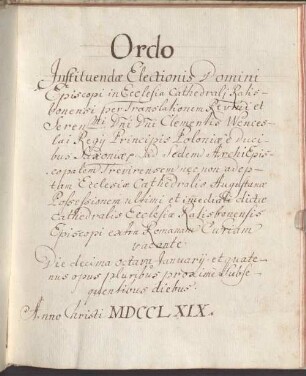 Ordo
Instituendæ Electionis Domini
Episcopi in Ecclesia Cathedrali Ratis-
bonensi per Translationem Revmi et
Serenmi Dni Dni Clementis Wences-
lai Regij Principis Poloniæ è duci-
bus Saxoniæ ad Sedem ArchiEpis-
copalem Trevirensem nec non adep-
tam Ecclesiæ Cathedralis Augustanæ
Possessionem ultimi et im̄ediati dictæ
Cathedralis Ecclesiæ Ratisbonensis
Episcopi extra Romanam Curiam
vacante
Die decima octava Januarij et quate-
nus opus pluribus proximè subse-
quentibus diebus.
Anno Christi MDCCLXIX.